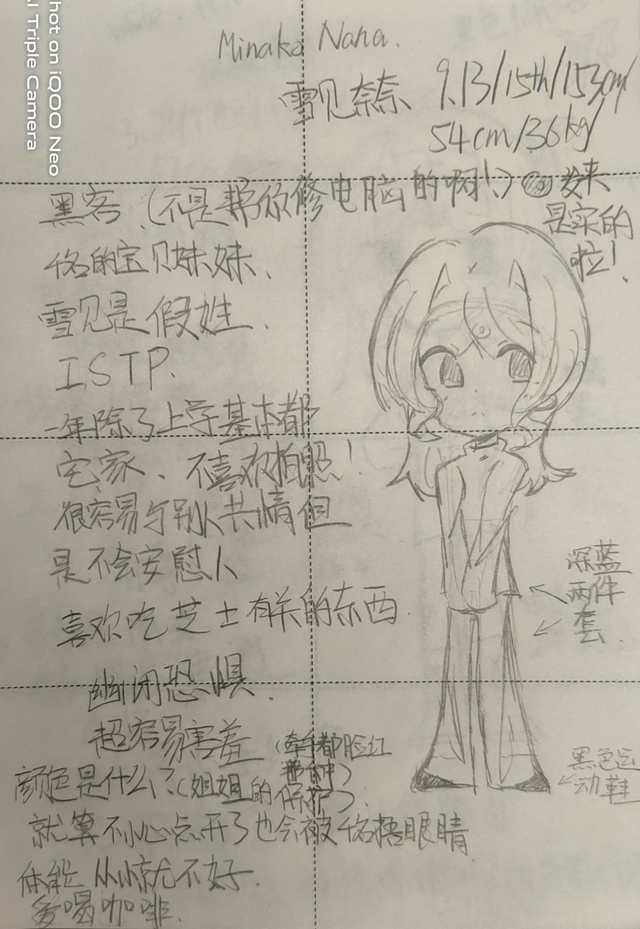 Shot on iQOO Neo
AI Triple Camera
Minaka Nana.
雪见奈奈 9.13/15th/153cm/
54cm/36kg/
黑客.(不是帮你修电脑的啊!) 发夹
是实的
啦!
佲的宝贝妹妹.
雪见是假姓.
ISTP.
一年除了上学基本都
宅家、不喜欢拍照!
很容易与别人共情但
是不会安慰人
喜欢吃芝士有关的东西.
幽闭恐惧.
超容易害羞(牵手都脸红
那种)
颜色是什么?(姐姐的保护).
就算不小心点开了也会被佲捂眼睛
体能从小就不好.
爱喝咖啡.
深蓝
两件
套.
黑色运
动鞋